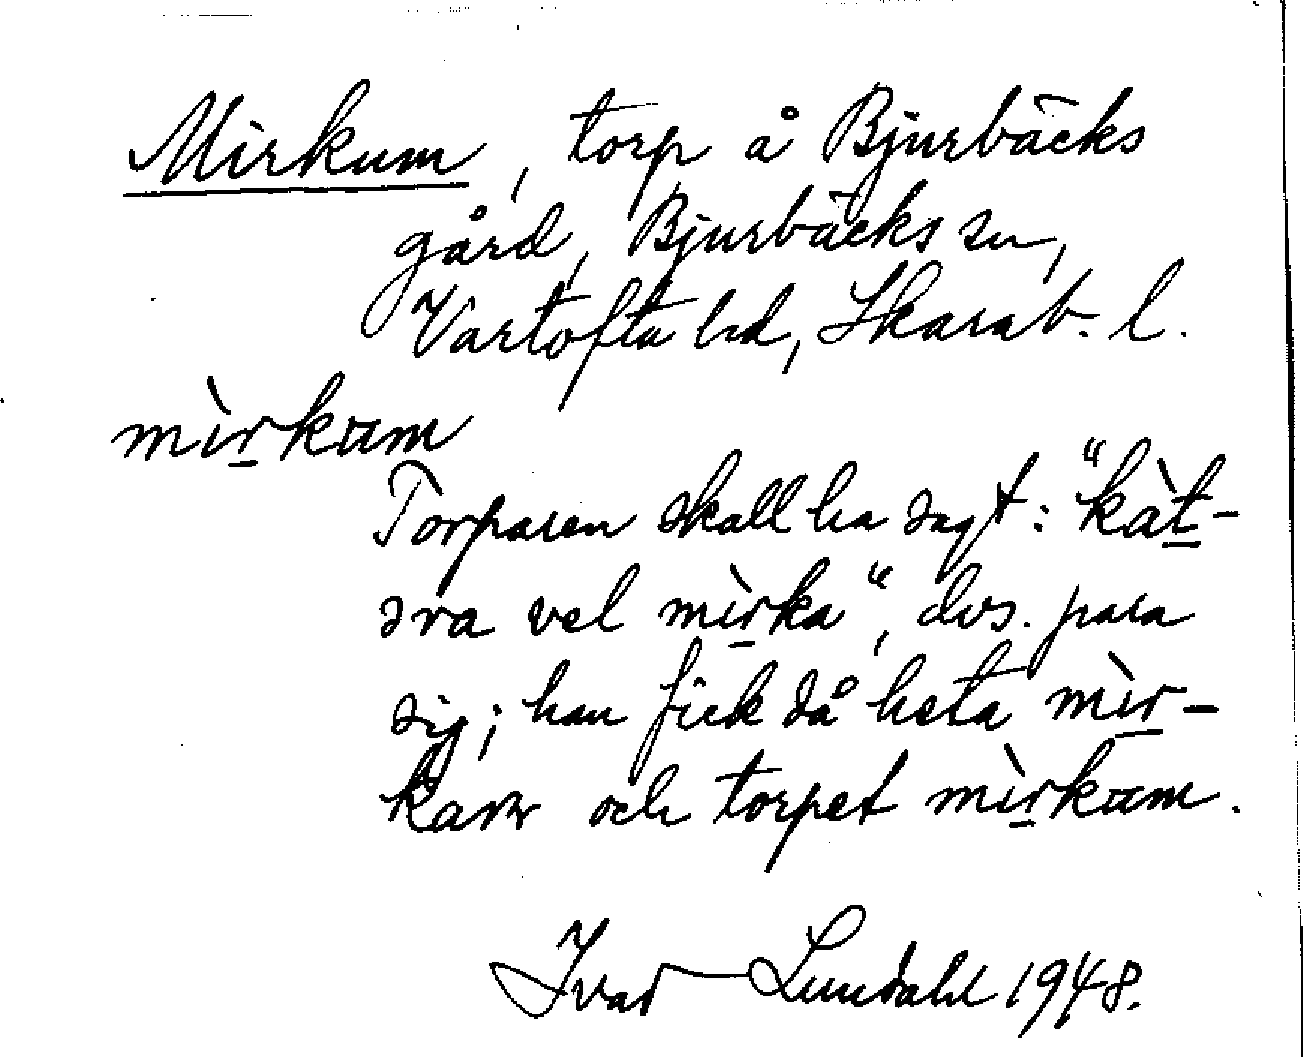 Mirkum, torp å Bjurbäcks
gård, Bjurbäcks sn,
Vartofta hd, Skarab. l.
mìrkɯm
Torparen skall ha sagt: "kàt-
əra vel mìrka", dvs. para
sig; han fick då heta mìr-
karn och torpet mìrkɯm.
Ivar Lundahl 1948.